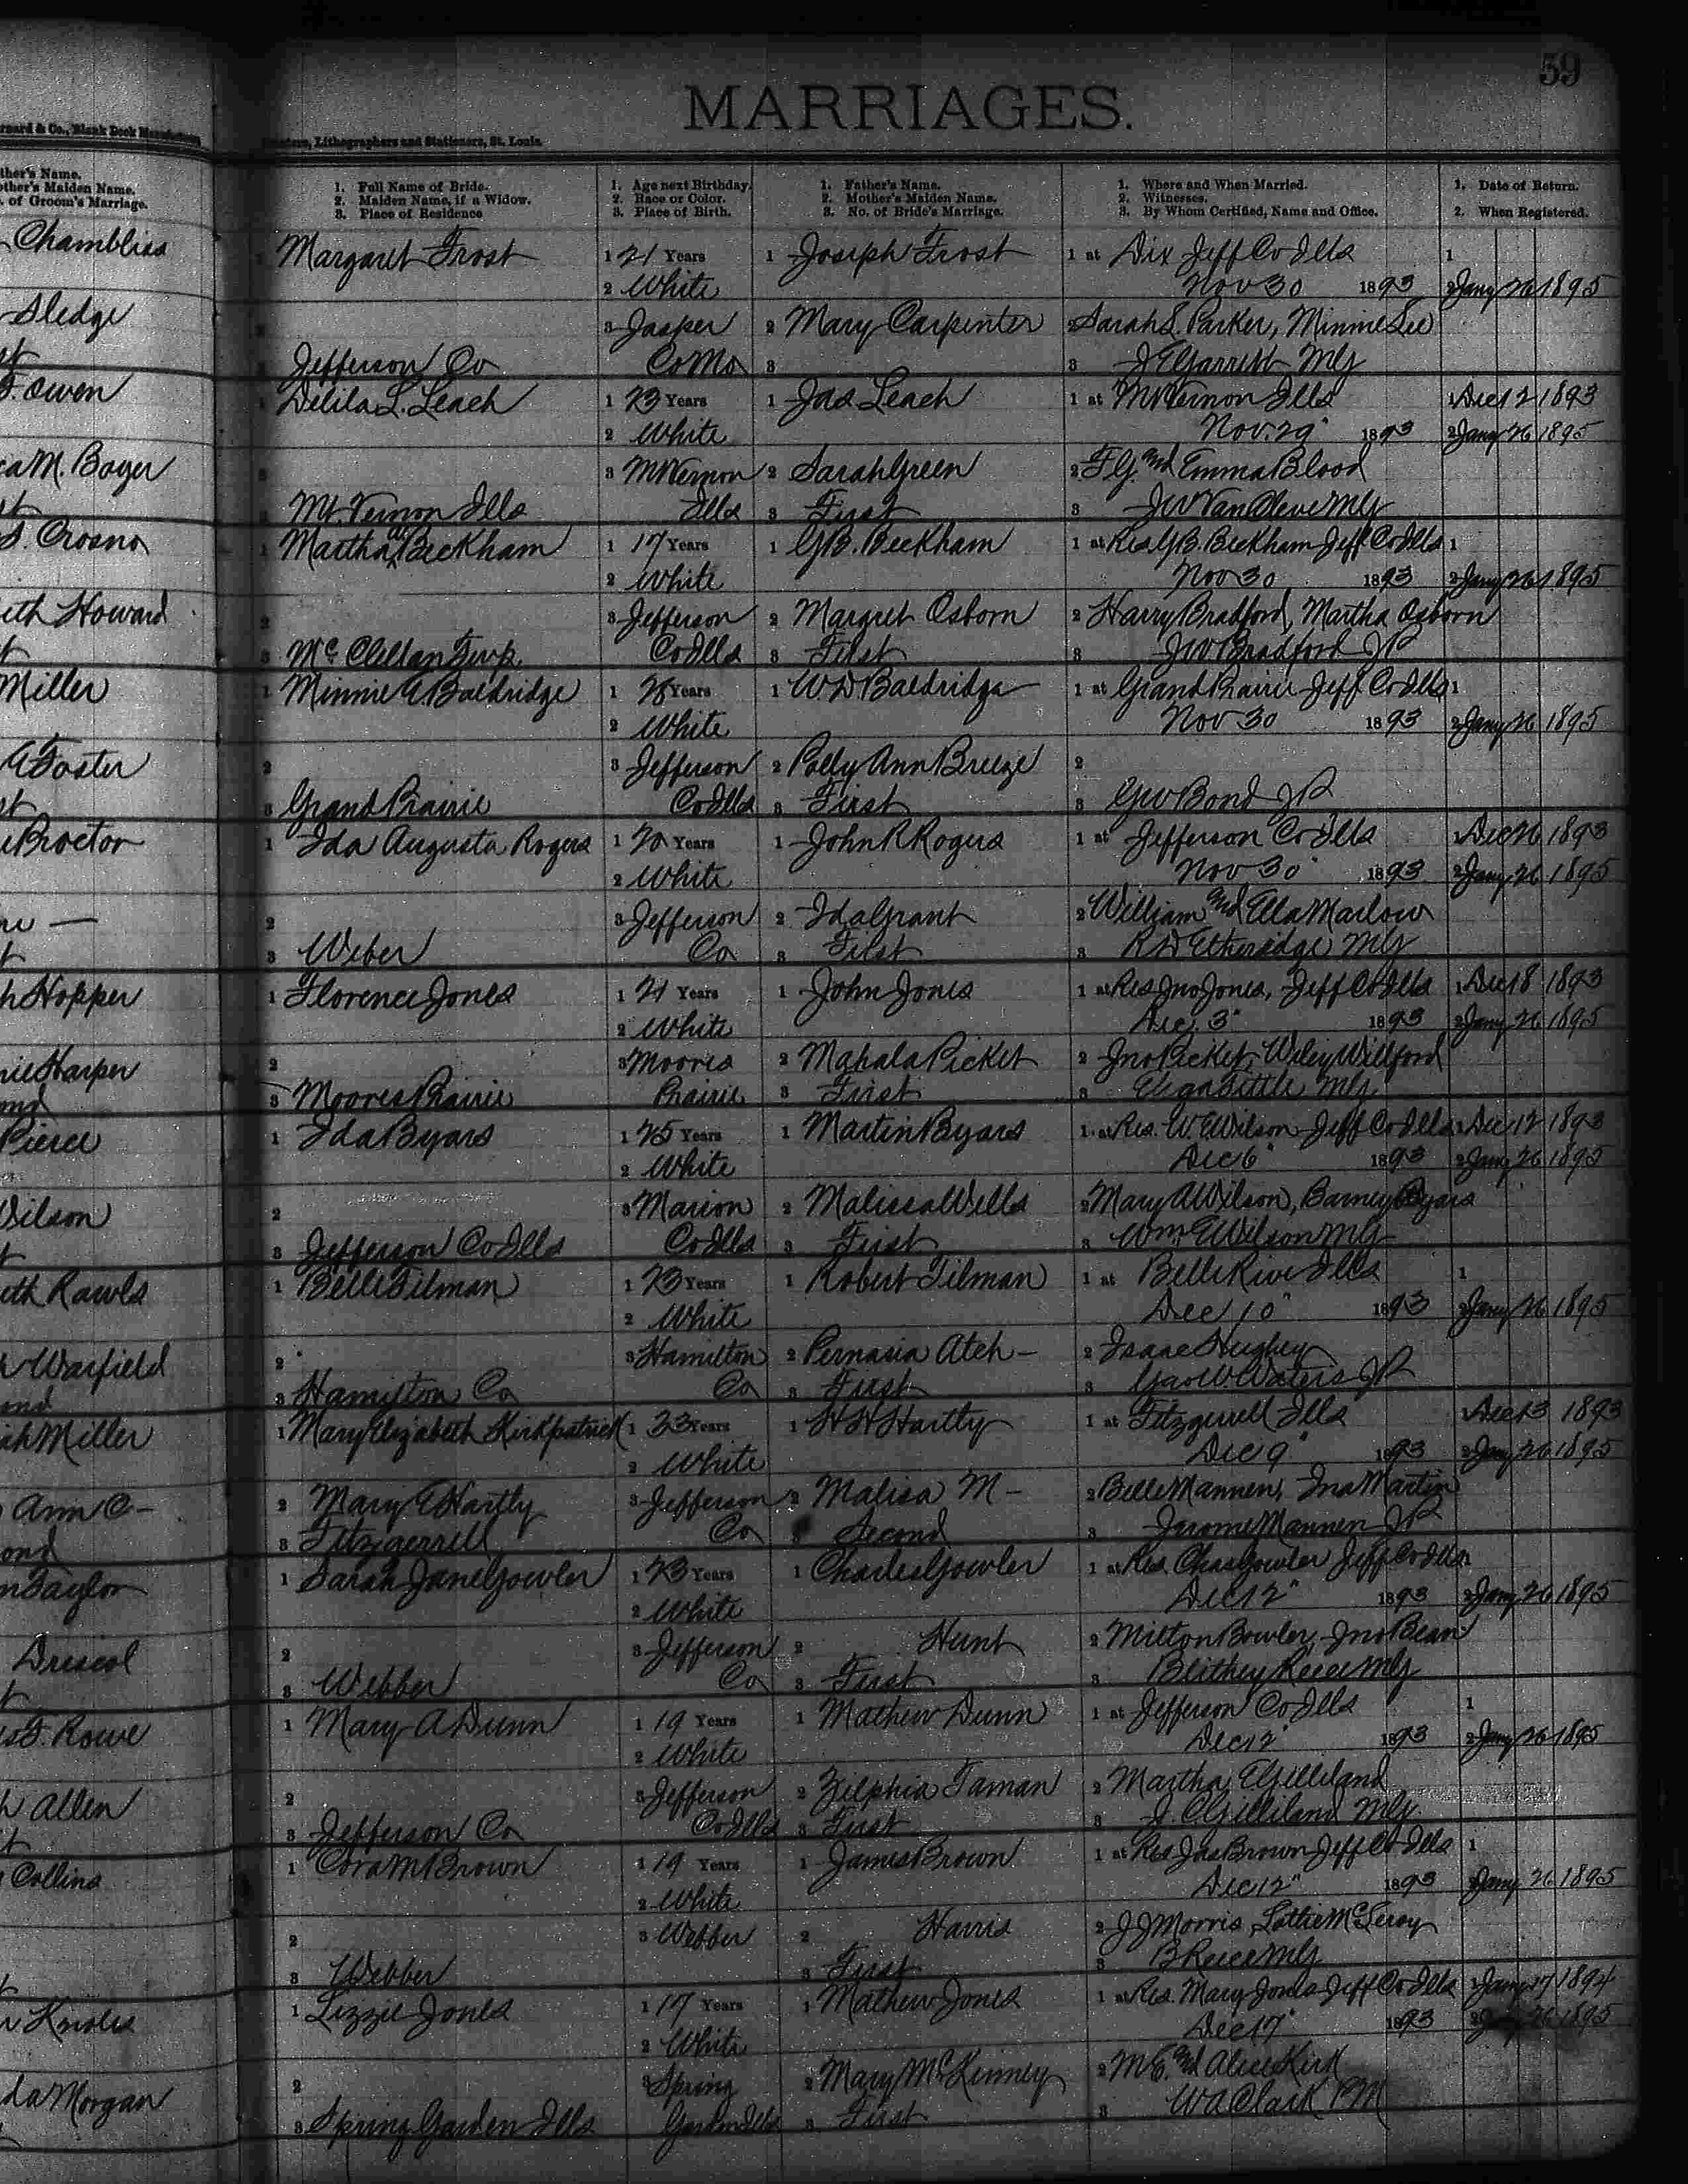 59
MARRIAGES.
Lithographers and Stationers, St. Louis.
1. Full Name of Bride. 2. Maiden Name, if a Widow. 3. Place of Residence
1. Age next Birthday. 2. Race or Color. 3. Place of Birth.
1. Father's Name. 2. Mother's Maiden Name. 3. No. of Bride's Marriage.
1. Where and When Married. 2. Witnesses. 3. By Whom Certified, Name and Office.
1. Date of Return. 2. When Registered.
Chambliss
Margaret Frost 1 21 Years 1 Joseph Frost 1 at Dix Jeff Co Ills 1
2 White Nov 30 1893 2 Jany 26 1895
Sledge
3 Jasper 2 Mary Carpenter 2 Sarah S. Parker, Minnie Lee
Jefferson Co Co Mo 3 3 J E Garrett MG
Owen
Delila L. Leach 1 23 Years 1 Jas Leach 1 at Mt Vernon Ills 1 Dec 12 1893
2 White Nov. 29" 1893 2 Jany 26 1895
M. Boyer
3 Mt Vernon 2 Sarah Green 2 F G. and Emma Blood
Mt. Vernon Ills Ills 3 First 3 J W Van Cleve MG
Crosno
1 Martha A Beckham 1 17 Years 1 G B. Beckham 1 at Res G B. Beckham Jeff Co Ills 1
2 White Nov 30 1893 2 Jany 26 1895
Howard
2 3 Jefferson 2 Margret Osborn 2 Harry Bradford, Martha Osborn
3 Mc Clellan Twp. Co Ills 3 First 3 J W Bradford JP
Miller
1 Minnie A. Baldridge 1 28 Years 1 W. D Baldridge 1 at Grand Prairie Jeff Co Ills 1
2 White Nov 30 1893 2 Jany 26 1895
Foster
2 3 Jefferson 2 Polly Ann Breeze 2
3 Grand Prairie Co Ills 3 First 3 G W Bond JP
Proctor
1 Ida Augusta Rogers 1 20 Years 1 John R Rogers 1 at Jefferson Co Ills 1 Dec 26 1893
2 White Nov 30" 1893 2 Jany 26 1895
2 3 Jefferson 2 Ida Grant 2 William and Ella Marlow
3 Weber Co 3 First 3 R D Etheridge MG
Hopper
1 Florence Jones 1 21 Years 1 John Jones 1 at Res Jno Jones, Jeff Co Ills 1 Dec 18 1893
2 White Dec. 3" 1893 2 Jany 26 1895
Harper
2 3 Moores 2 Mahala Picket 2 Jno Picket, Wiley Willford
3 Moores Prairie Prairie 3 First 3 MG
Pierce
1 Ida Byars 1 25 Years 1 Martin Byars 1 at Res. W. E Wilson Jeff Co Ills 1 Dec 12 1893
2 White Dec 6" 1893 2 Jany 26 1895
Wilson
2 3 Marion 2 Malissa Wells 2 Mary A Wilson, Barney Byars
3 Jefferson Co Ills Co Ills 3 First 3 Wm E Wilson MG
Rawls
1 Belle Tilman 1 23 Years 1 Robert Tilman 1 at Belle Rive Ills 1
2 White Dec 10" 1893 2 Jany 26 1895
Warfield
2 3 Hamilton 2 Pernasia Atch- 2 Isaac Hughey
3 Hamilton Co Co 3 First 3 W. Waters JP
Miller
1 Mary Elizabeth Kirkpatrick 1 23 Years 1 H H Hartly 1 at Fitzgerrell Ills Dec 13 1893
2 White Dec 9" 1893 2 Jany 26 1895
Ann C-
2 Mary E Hartly 3 Jefferson 2 Malisa M- 2 Belle Mannen, Jno Martin
3 Fitzgerrell Co 3 Second 3 Jerome Mannen JP
Taylor
1 Sarah Jane Gowler 1 23 Years 1 Charles Gowler 1 at Res. Chas Gowler Jeff Co Ills
2 White Dec 12" 1893 2 Jany 26 1895
Driscol
2 3 Jefferson 2 Hunt 2 Milton Bowler, Jno Bean
3 Webber Co 3 First 3 Blithey Reece MG
Rowe
1 Mary A Dunn 1 19 Years 1 Mathew Dunn 1 at Jefferson Co Ills 1
2 White Dec 12" 1893 2 Jany 26 1895
Allen
2 3 Jefferson 2 Zilphia Taman 2 Martha E Gilliland
3 Jefferson Co Co Ills 3 First 3 J. C Gilliland MG
Collins
1 Cora M Brown 1 19 Years 1 James Brown 1 at Res Jas Brown Jeff Co Ills 1
2 White Dec 12" 1893 2 Jany 26 1895
2 3 Webber 2 Harris 2 J J Morris, Lottie McLeroy
3 Webber 3 First 3 B Reece MG
1 Lizzie Jones 1 17 Years 1 Mathew Jones 1 at Res. Mary Jones Jeff Co Ills 1 Jany 17 1894
2 White Dec 17" 1893 2 Jany 26 1895
Morgan
2 3 Spring 2 Mary McKinney 2 M E. and Alice Kirk
3 Spring Garden Ills Garden Ills 3 First 3 W A Clark PM